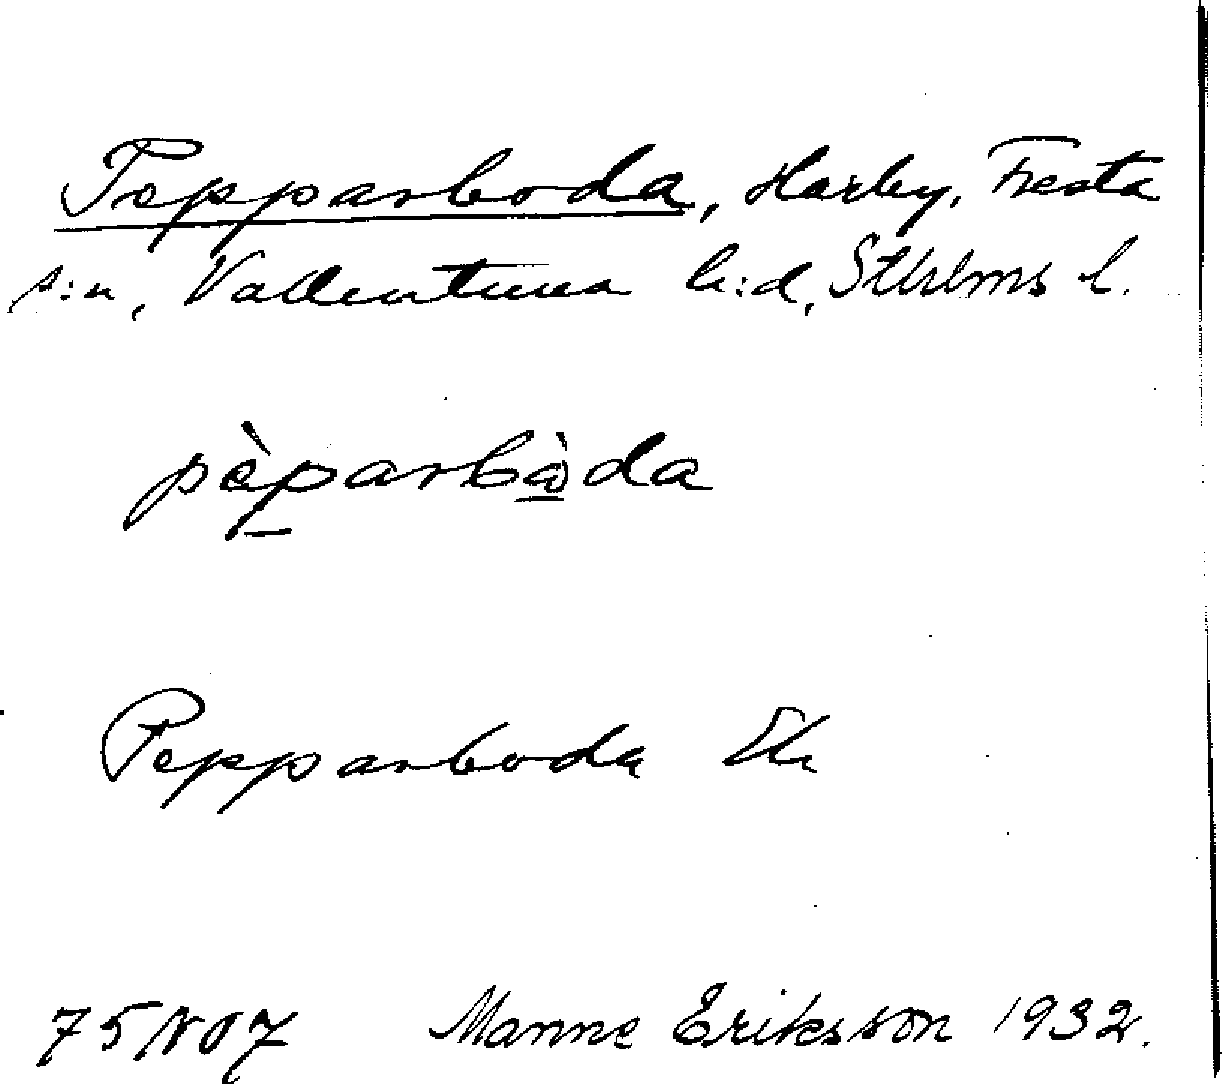 Pepparboda, Harby, Fresta
s:n, Vallentuna h:d, Sthlms l.
pèparbòda
Pepparboda Ek
75NO7 Manne Eriksson 1932.